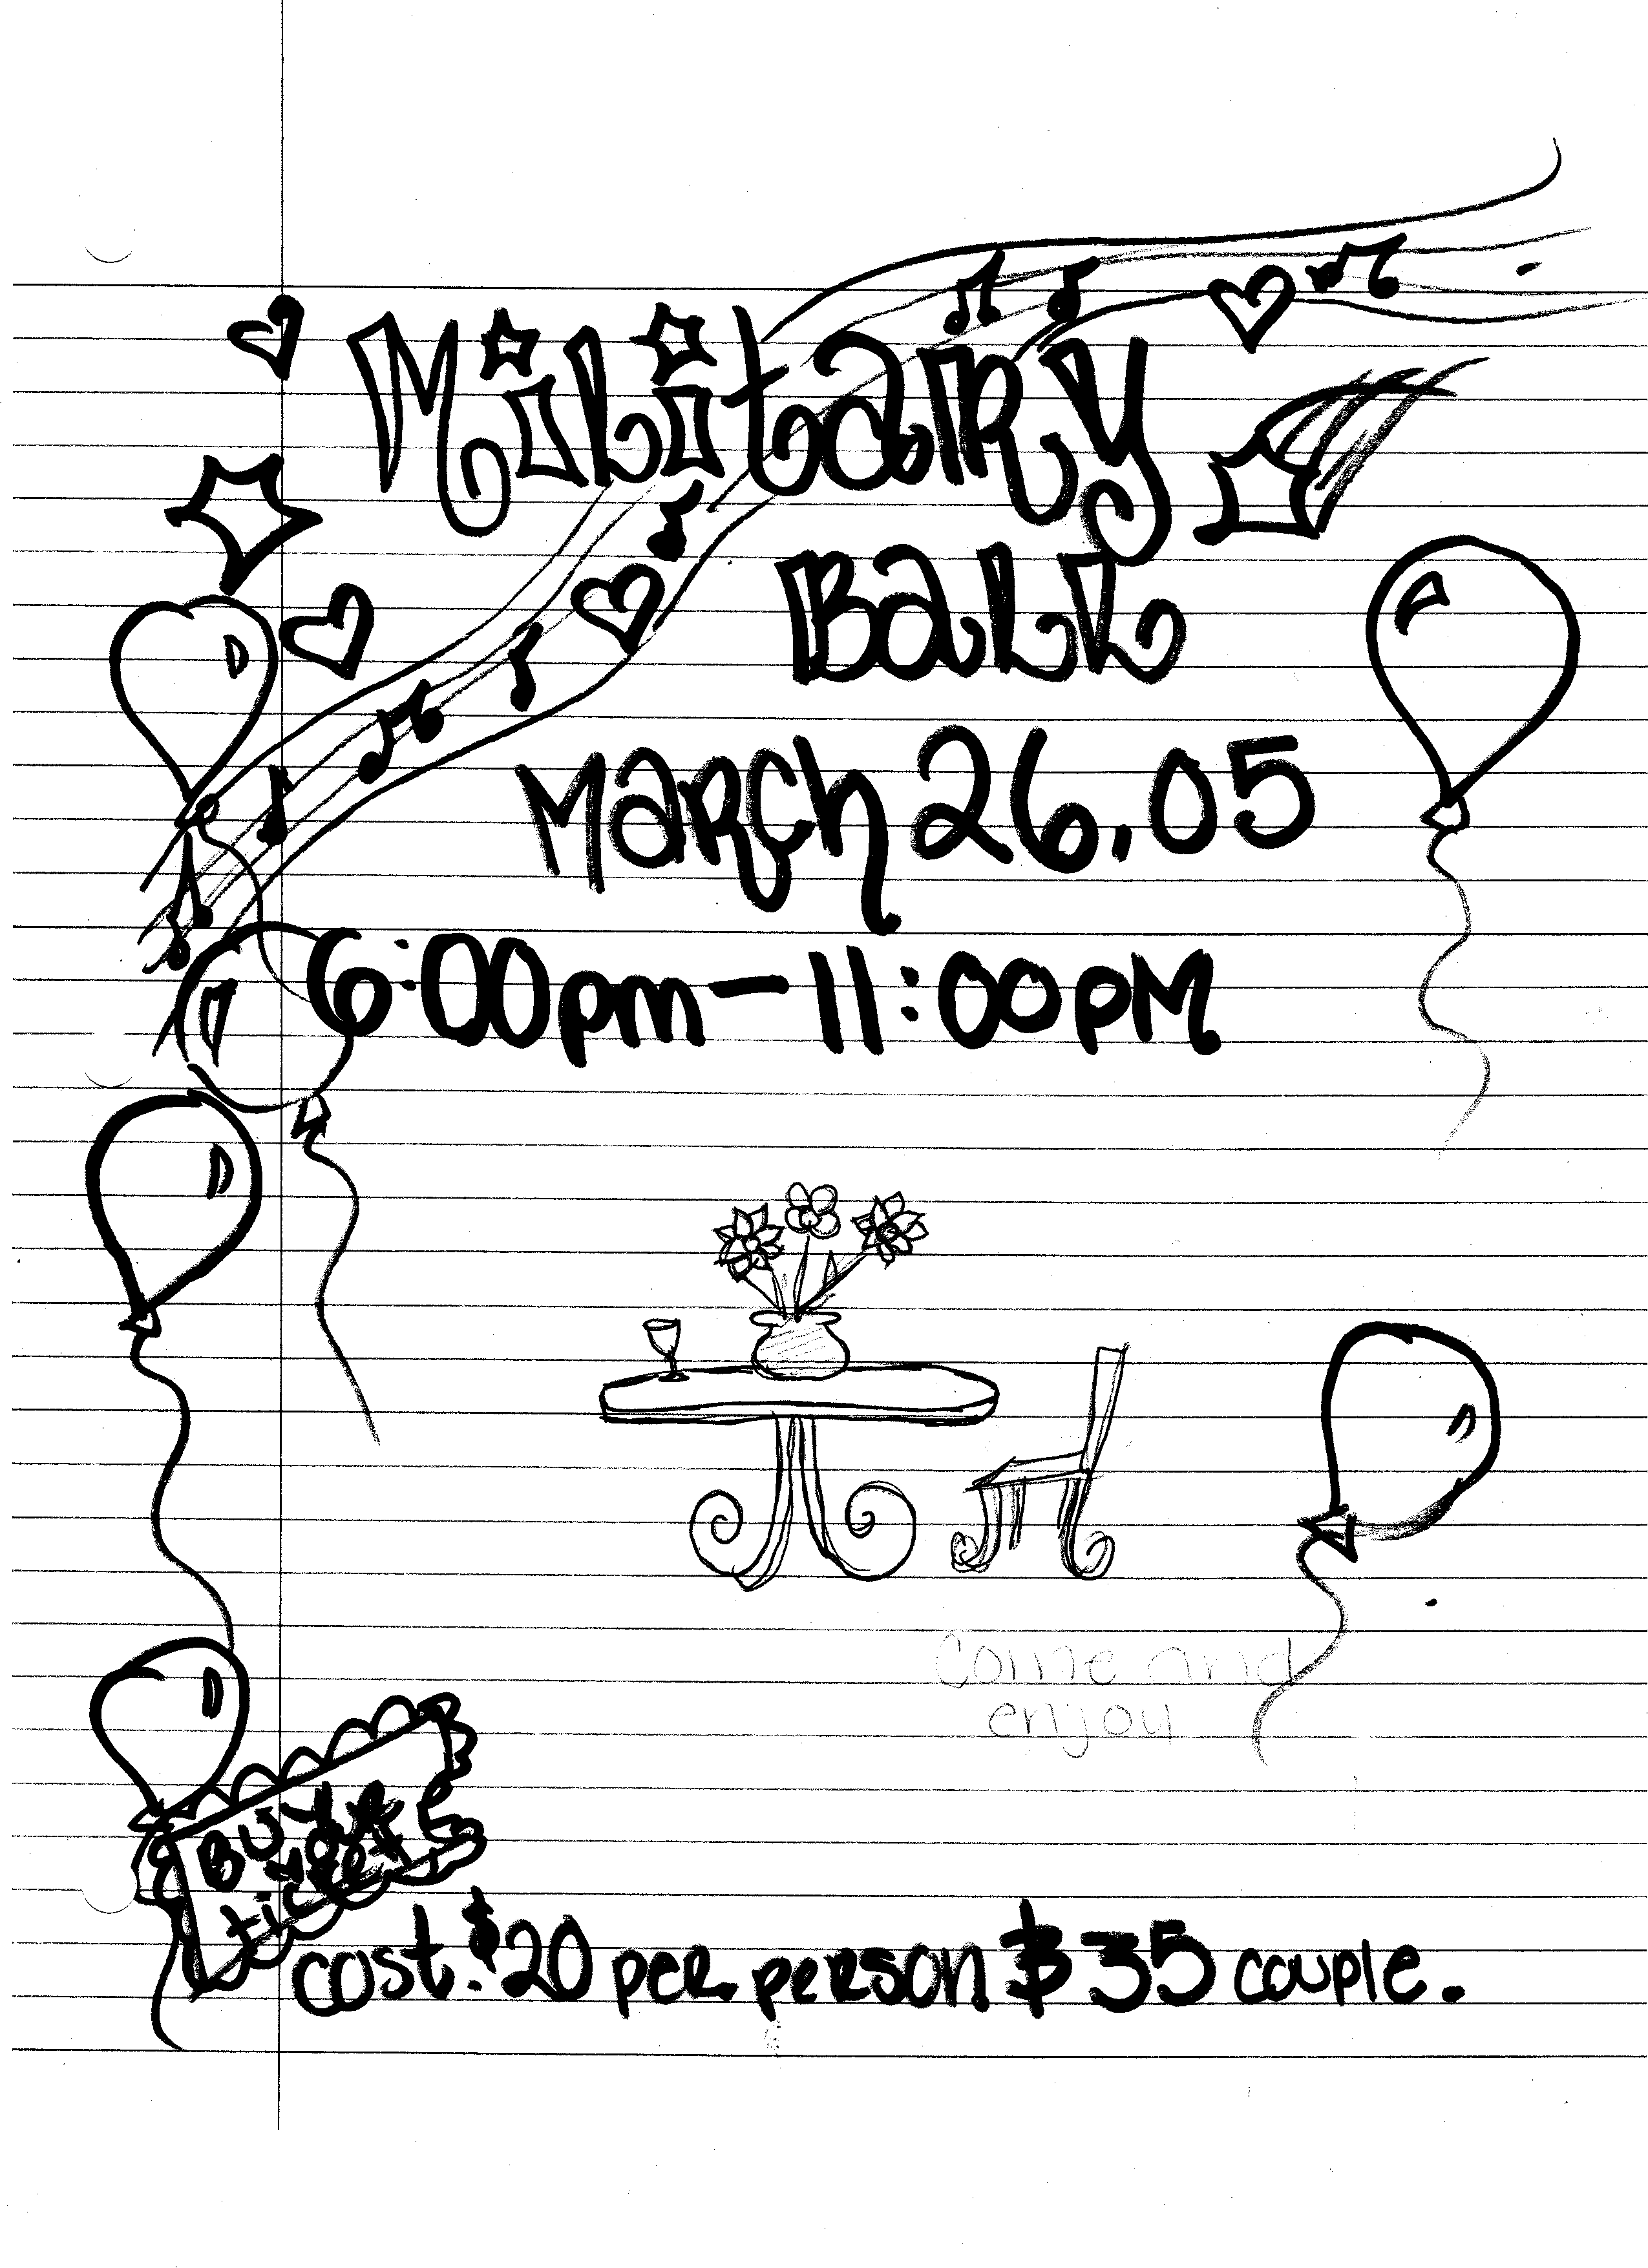 Military
Ball
March 26, 05
6:00pm - 11:00pM
come and
enjoy
Buy
tickets
cost: $20 per person $35 couple.